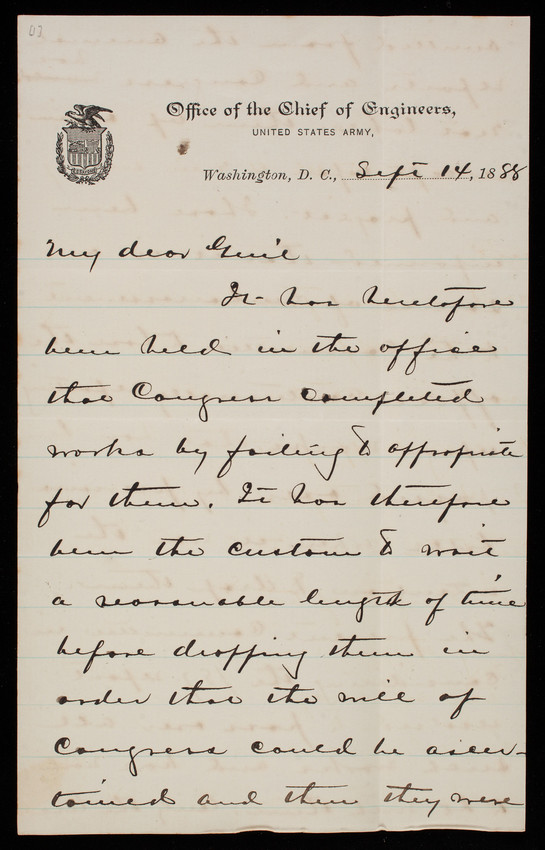 Office of the Chief of Engineers,
UNITED STATES ARMY,
Washington, D. C., Sept 14, 1888
My dear Gen'l
It has heretofore
been held in the office
that Congress completed
works by failing to appropriate
for them. It has therefore
been the custom to wait
a reasonable length of time
before dropping them in
order that the will of
Congress could be ascer-
tained and then they were